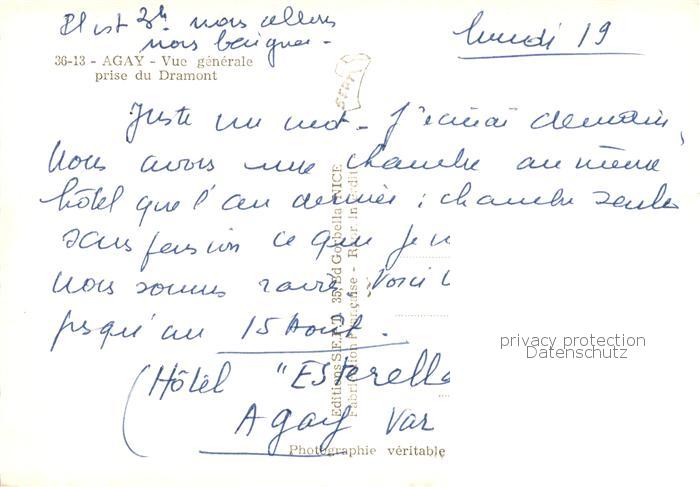 Il est 3h. nous allons
nous baigner -
lundi 19
36-13 - AGAY - Vue générale
prise du Dramont
Juste un mot - J'écrirai demain,
Nous avons une chambre au même
hôtel que l'an dernier ; chambre seule
sans pension ce que je
nous sommes ravis. Voici
jusqu'au 15 Août.
(Hôtel "Esterella
Agay Var
Photographie véritable
Editions S.E.P.T., 35, Bd Gorbella - NICE
Fabrication Française - Repr. Interdite
privacy protection
Datenschutz